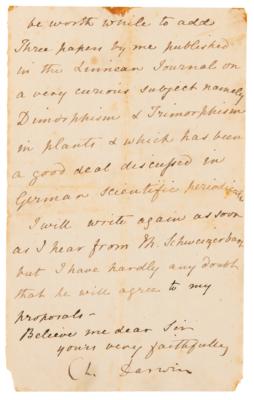 be worth while to add
Three papers by me published
in the Linnean Journal on
a very curious subject namely
Dimorphism & Trimorphism
in plants & which has been
a good deal discussed in
German scientific periodicals
I will write again as soon
as I hear from M. Schweizerbart
but I have hardly any doubt
that he will agree to my
proposals—
Believe me dear Sir
yours very faithfully
Ch. Darwin